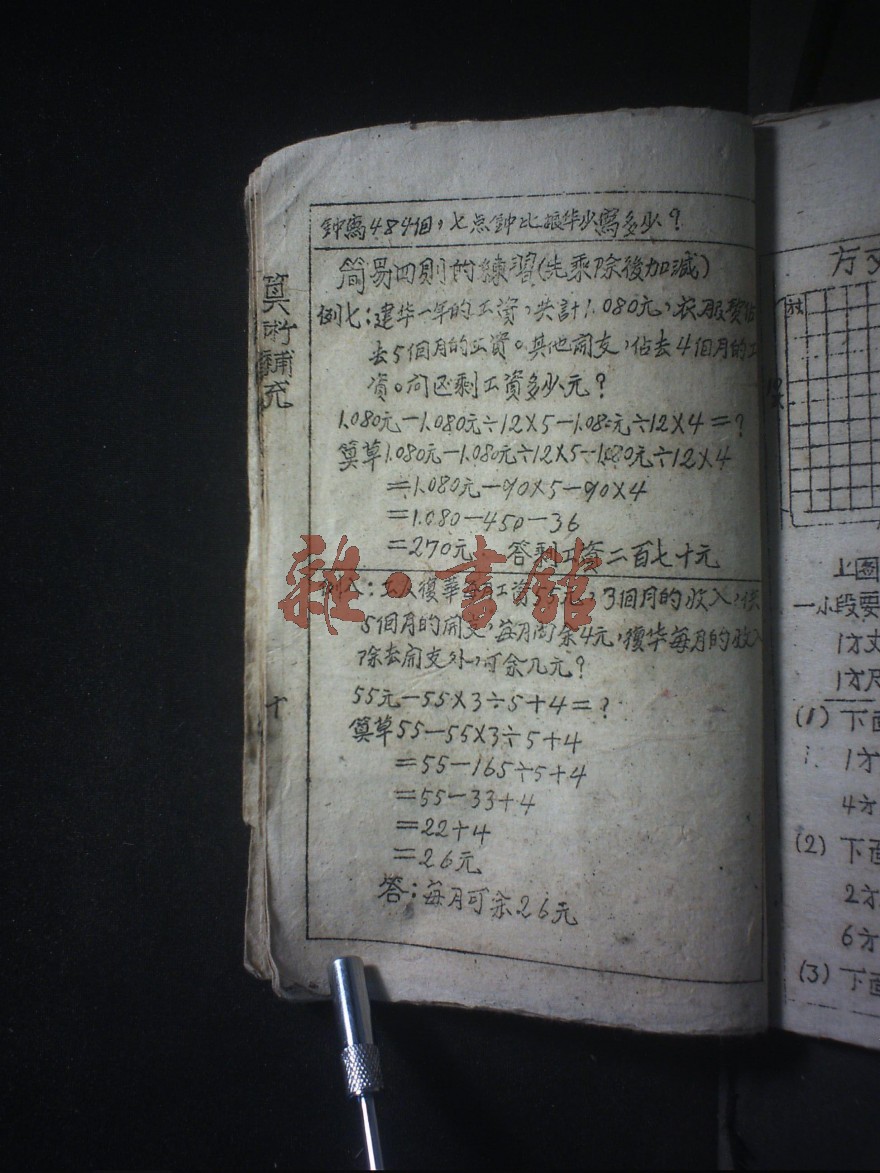 算術補充
十
鈡寫484個，七点鈡比振华少寫多少？
簡易四則的練習(先乘除後加減)
例七：建华一年的工資，共計1.080元，衣服費佔
去5個月的工資。其他開支，佔去4個月的工
資。问还剩工資多少元？
1.080元－1.080元÷12×5－1.080元÷12×4＝？
算草1.080元－1.080元÷12×5－1.080元÷12×4
＝1.080元－90×5－90×4
＝1.080－450－36
＝270元 答剩工資二百七十元
例八：工人復華每月工資55元，3個月的收入，供
5個月的開支，每月尚余4元，復华每月的收入
除去開支外，可余几元？
55元－55×3÷5＋4＝？
算草55－55×3÷5＋4
＝55－165÷5＋4
＝55－33＋4
＝22＋4
＝26元
答：每月可余26元
雜·書館
方丈
方寸
上圖
一小段要
1方丈
1方尺
(1) 下面
1方
4方
(2) 下面
2方
6方
(3) 下面